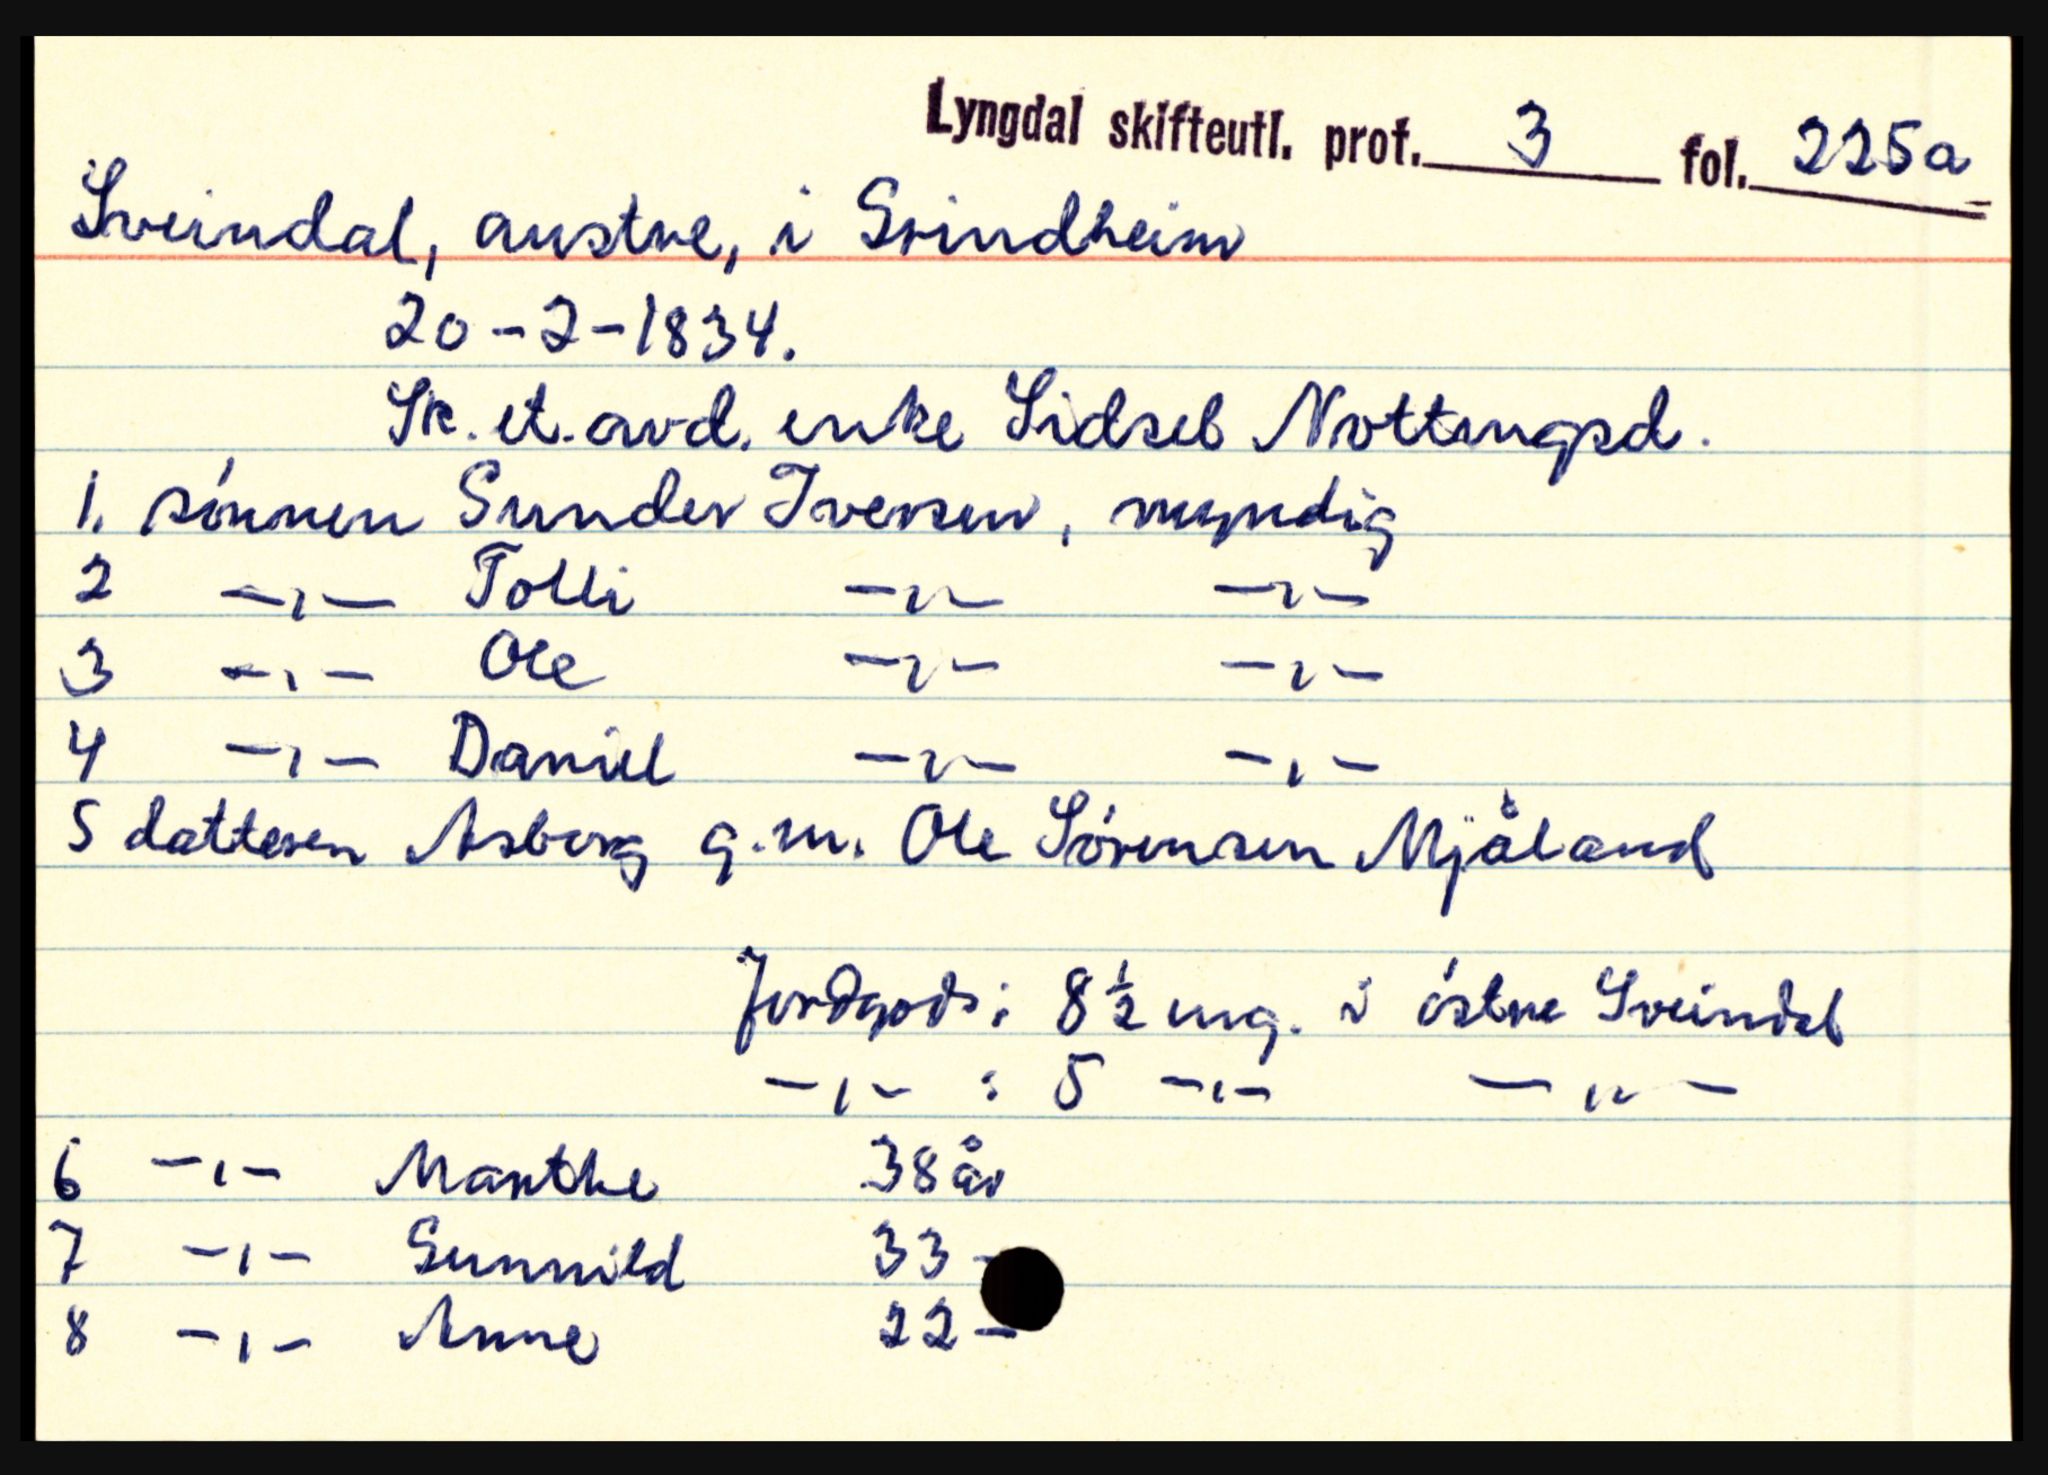 Lyngdal skifteutl. prot. 3 fol. 225a
Sveindal, austre, i Grindheim
20-2-1834.
Sk. et. avd. enke Sidsel Nottengsd.
1. sónnen Gunder Iversen, myndig
2 -"- Tolli -"- -"-
3 -"- Ole -"- -"-
4 -"- Daniel -"- -"-
5 datteren Asborg g.m. Ole Sórensen Mjåland
Jordgods: 8 1/2 mg. i óstre Sveindal
-"- : 5 -"- -"-
6 -"- Marthe 38 år
7 -"- Gunnild 33 -
8 -"- Anne 22 -